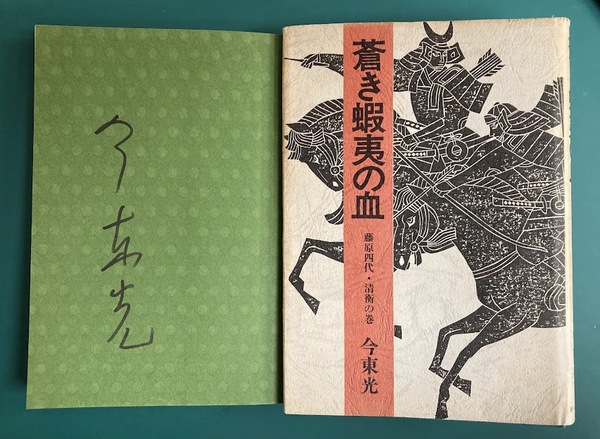 今東光
蒼き蝦夷の血
藤原四代・清衡の巻
今東光